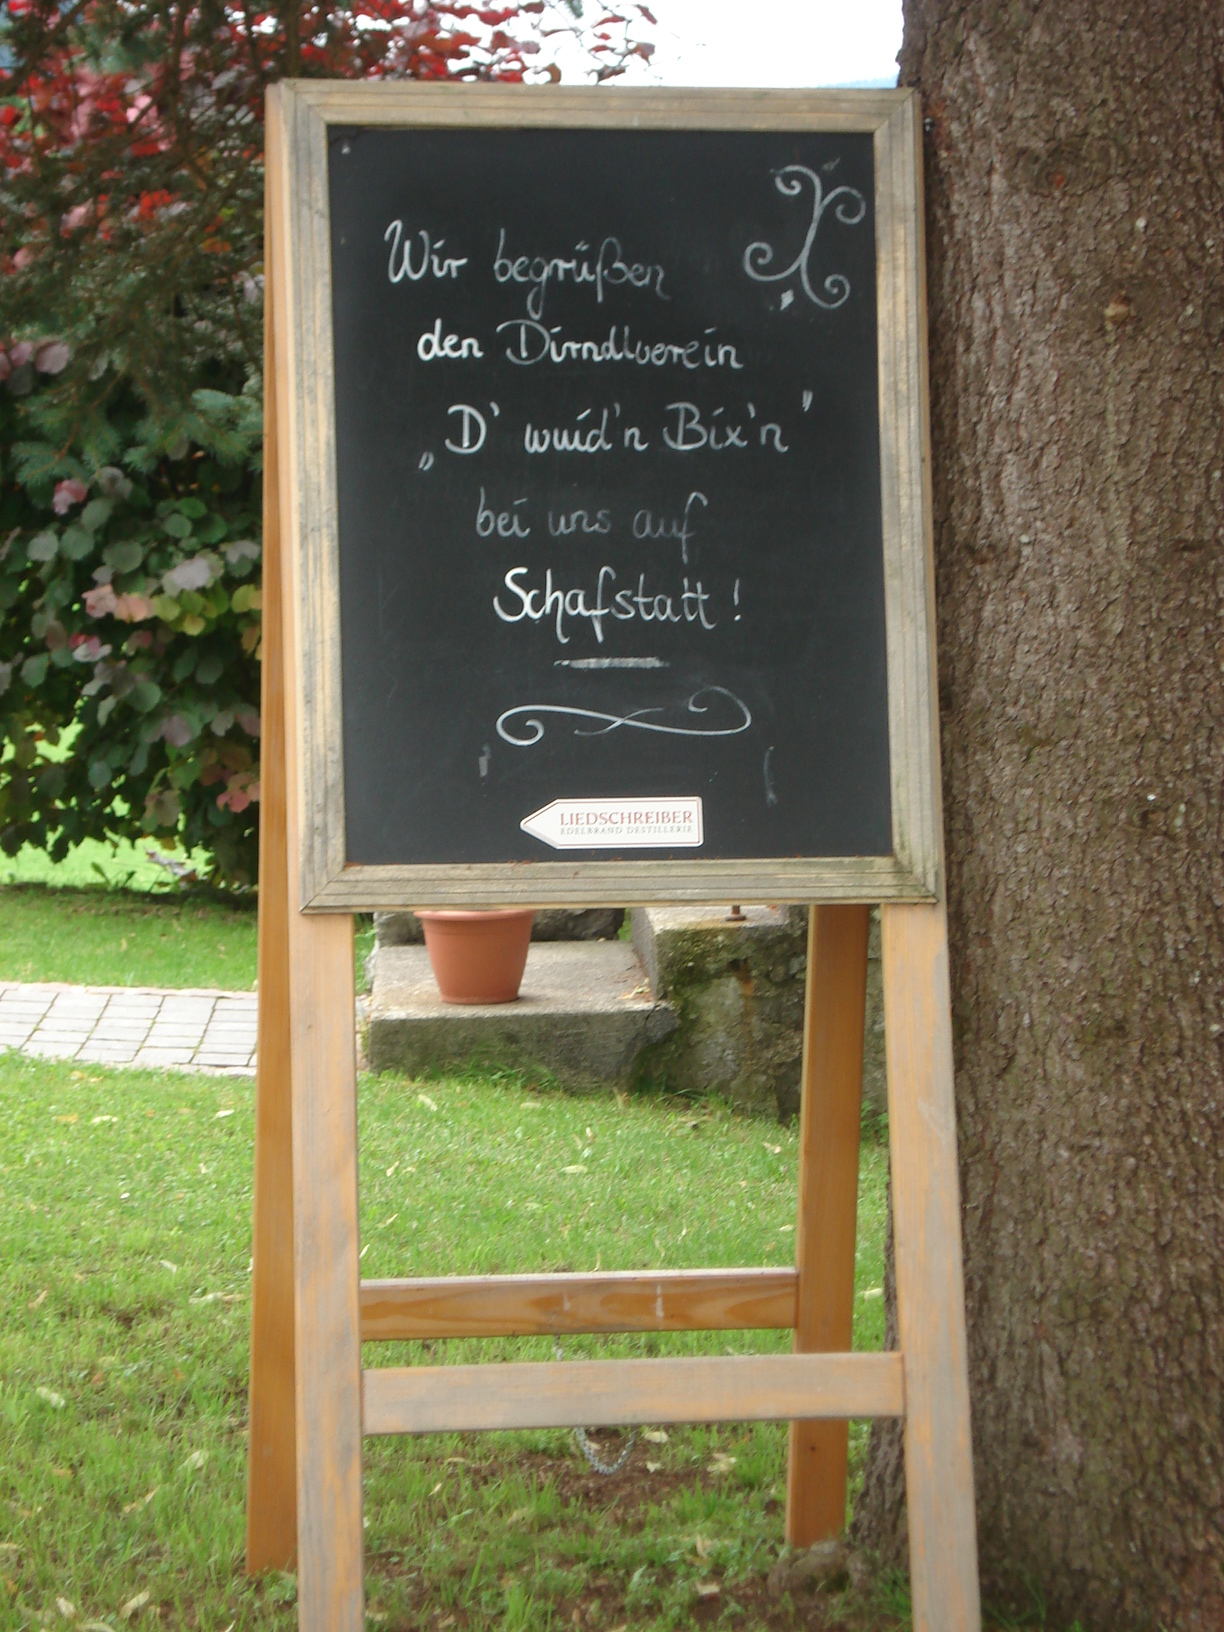 Wir begrüßen
den Dirndlverein
„D' wuid'n Bix'n"
bei uns auf
Schafstatt!
LIEDSCHREIBER
EDELBRAND DESTILLERIE